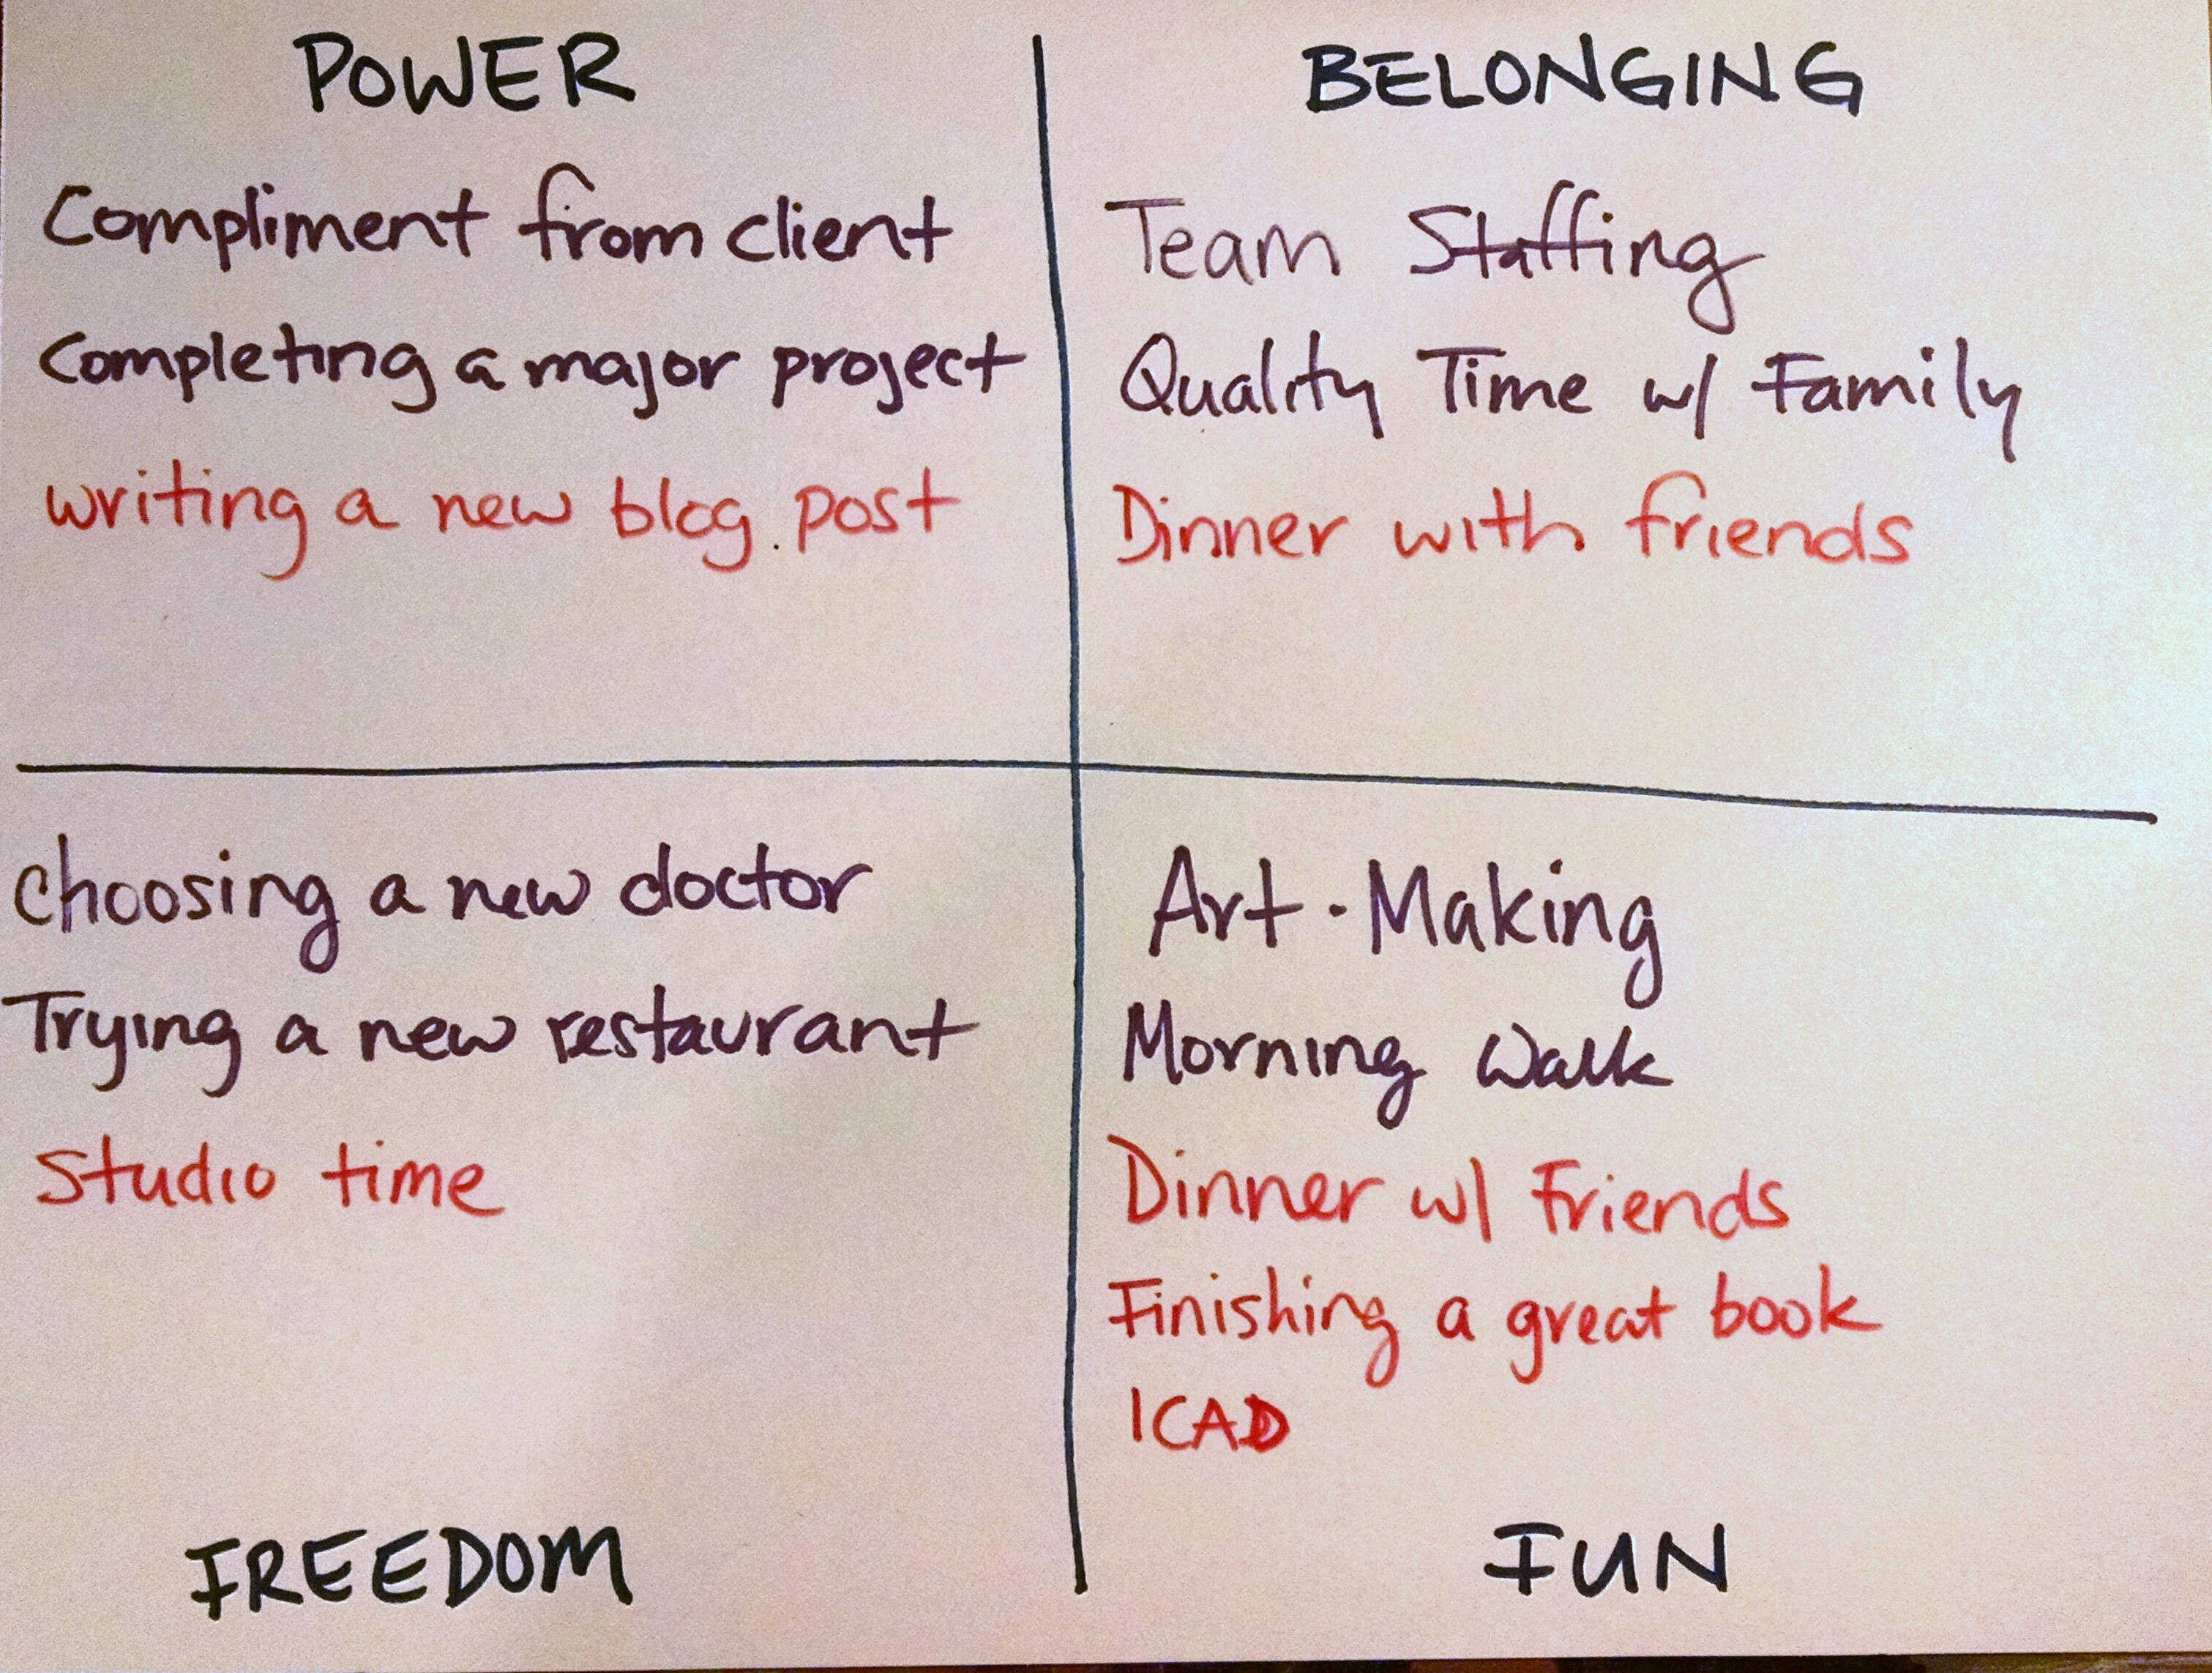 POWER
Compliment from client
Completing a major project
writing a new blog post
BELONGING
Team Staffing
Quality Time w/ Family
Dinner with friends
choosing a new doctor
Trying a new restaurant
Studio time
FREEDOM
Art-Making
Morning Walk
Dinner w/ Friends
Finishing a great book
ICAD
FUN